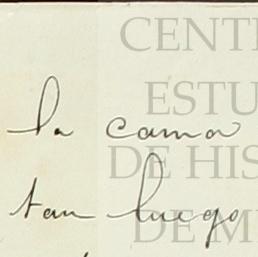 CENT
ESTU
la cama
DE HIS
tan luego
DE M